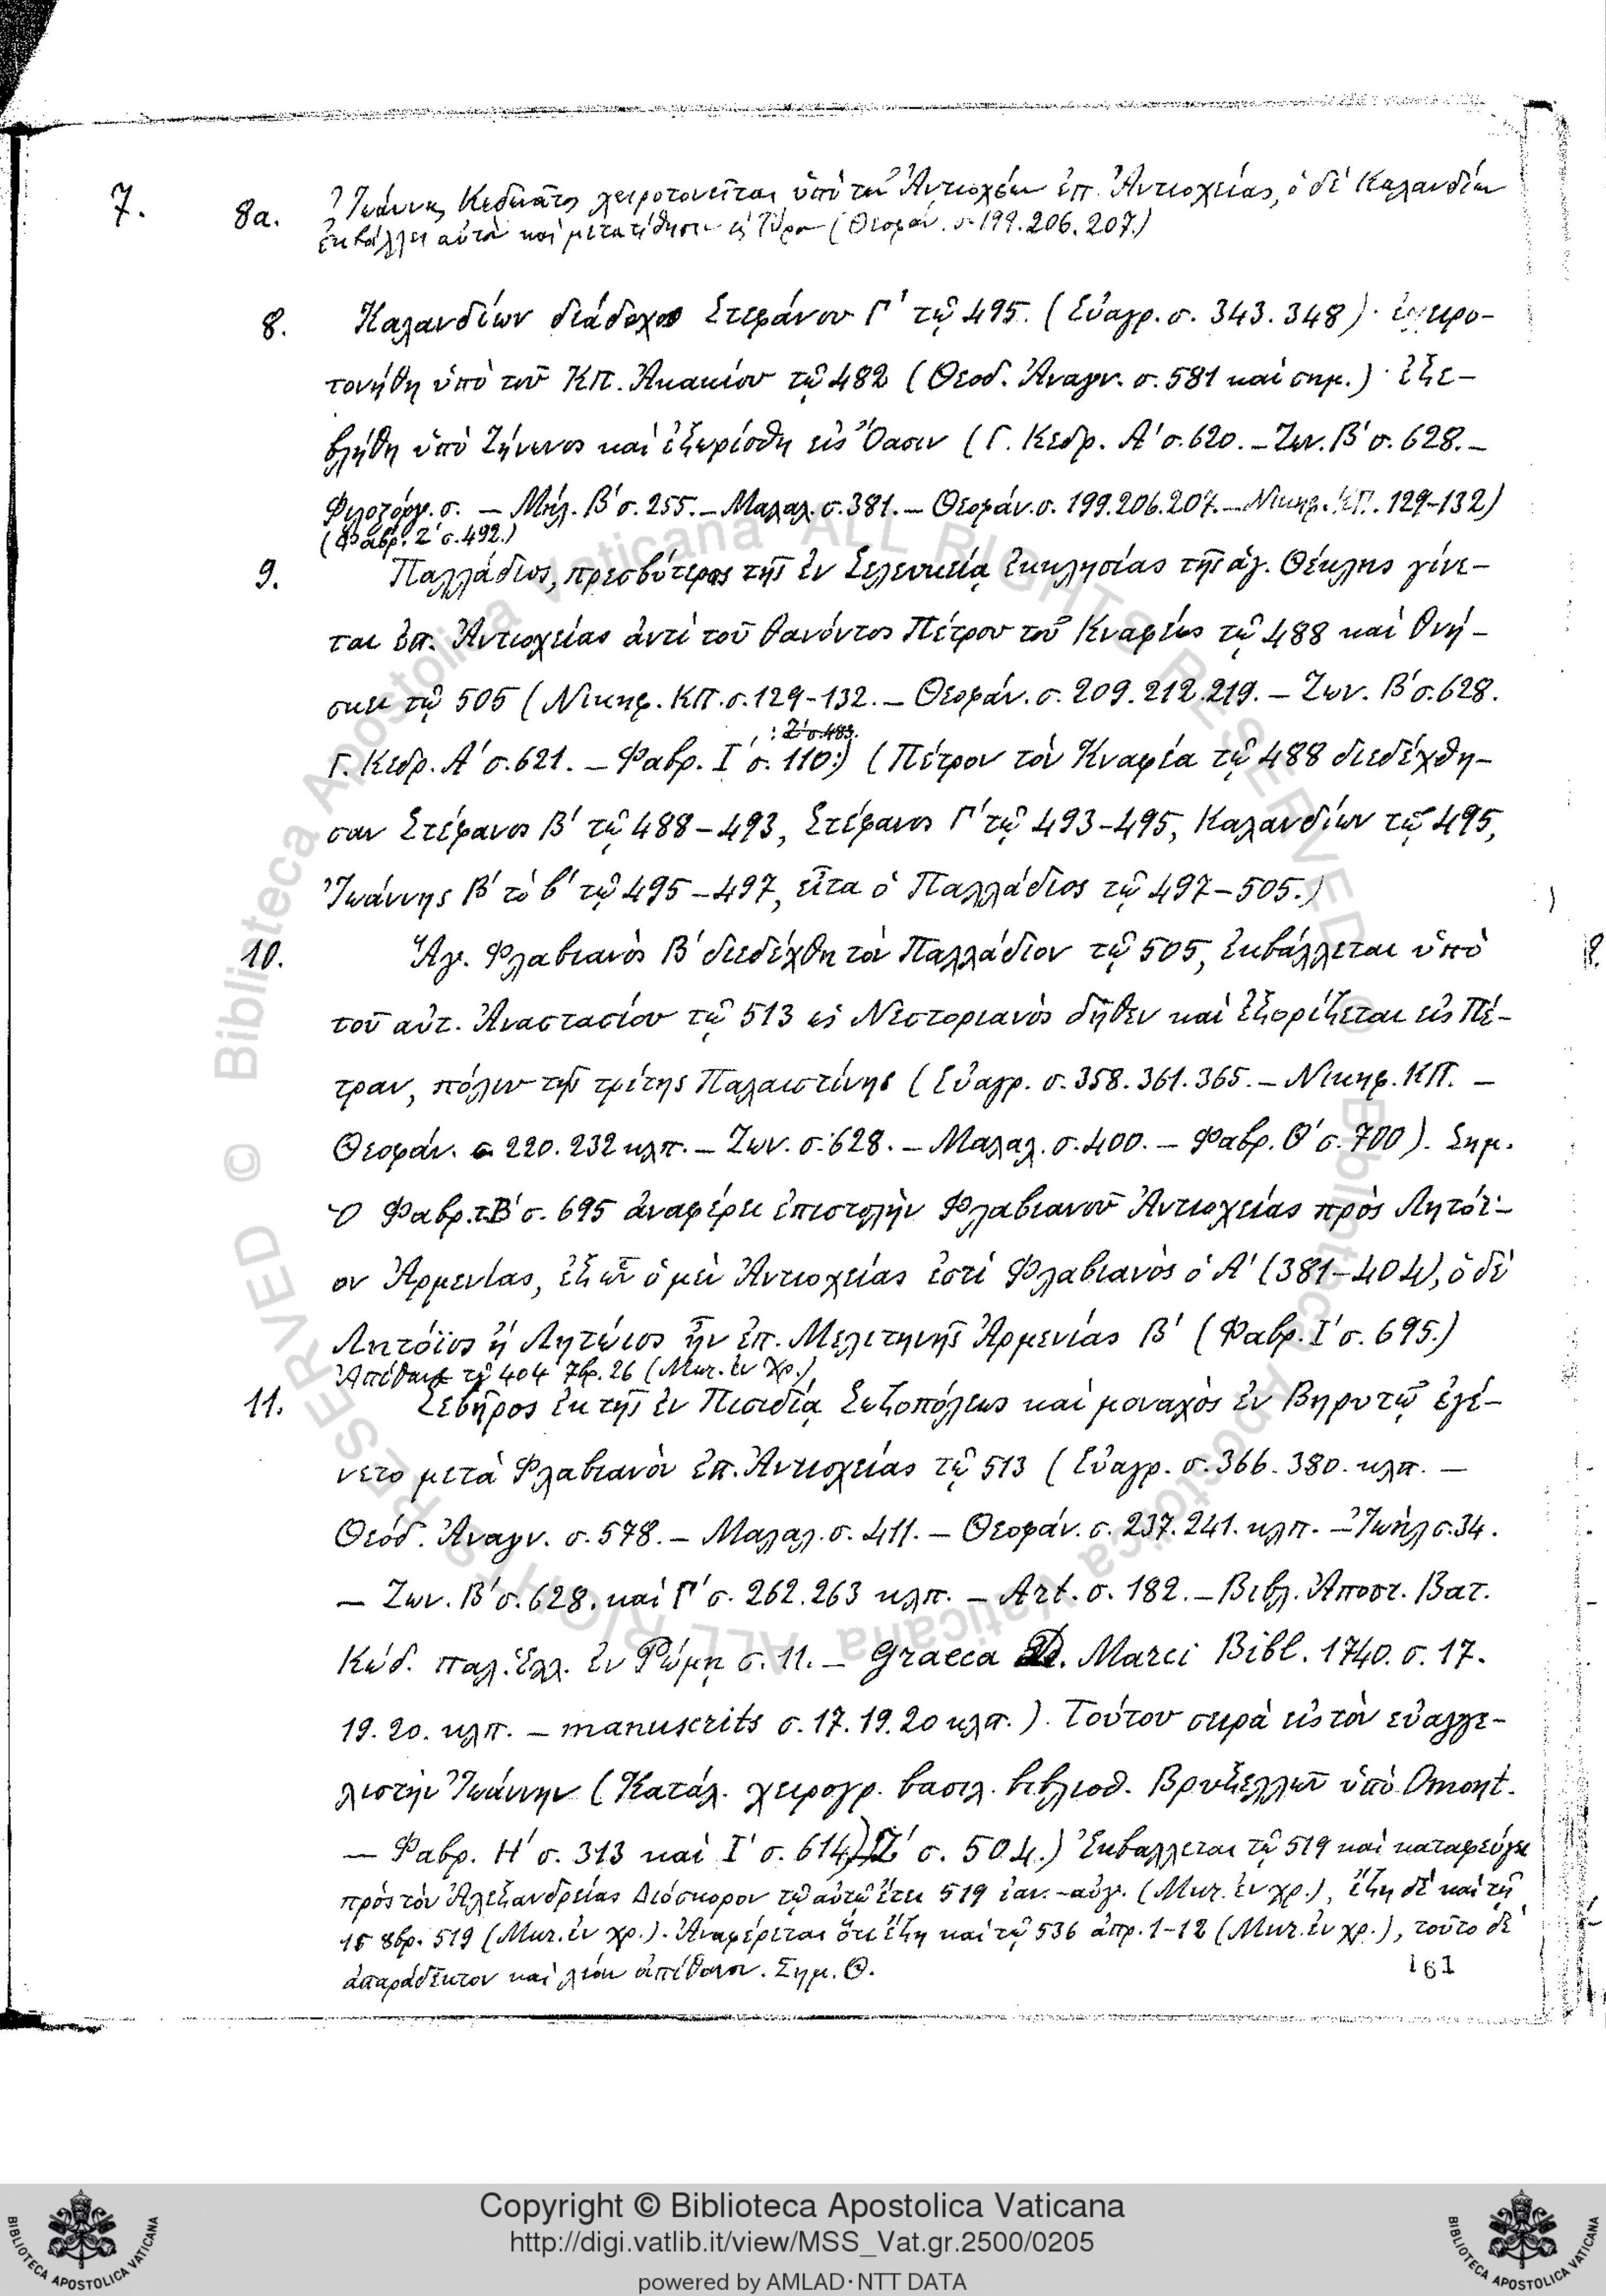 7.
8a. Ἰωάννης Κωδωνᾶτος χειροτονεῖται ὑπὸ τῶν Ἀντιοχέων ἐπ. Ἀντιοχείας, ὁ δὲ Καλανδίων
ἐκβάλλει αὐτὸν καὶ μετατίθησιν εἰς Τύρον (Θεοφάν. σ. 199. 206. 207.)
8. Καλανδίων διάδοχος Στεφάνου Γ΄ τῷ 495. (Εὐαγρ. σ. 343. 348)· ἐχειρο-
τονήθη ὑπὸ τοῦ ΚΠ. Ἀκακίου τῷ 482 (Θεοδ. Ἀναγν. σ. 581 καὶ σημ.)· ἐξε-
βλήθη ὑπὸ Ζήνωνος καὶ ἐξωρίσθη εἰς Ὄασιν (Γ. Κεδρ. Α΄ σ. 620. – Ζων. Β΄ σ. 628. –
Φιλοστόργ. σ. – Μήλ. Β΄ σ. 255. – Μαλαλ. σ. 381. – Θεοφάν. σ. 199. 206. 207. – Νικηφ. ΚΠ. 129-132)
(Φαβρ. Ζ΄ σ. 492.)
9. Παλλάδιος, πρεσβύτερος τῆς ἐν Σελευκείᾳ ἐκκλησίας τῆς ἁγ. Θέκλης γίνε-
ται ἐπ. Ἀντιοχείας ἀντὶ τοῦ θανόντος Πέτρου τοῦ Κναφέως τῷ 488 καὶ θνή-
σκει τῷ 505 (Νικηφ. ΚΠ. σ. 129-132. – Θεοφάν. σ. 209. 212. 219. – Ζων. Β΄ σ. 628.
: Ζ΄ σ. 483.
Γ. Κεδρ. Α΄ σ. 621. – Φαβρ. Ι΄ σ. 110:) (Πέτρον τὸν Κναφέα τῷ 488 διεδέχθη-
σαν Στέφανος Β΄ τῷ 488-493, Στέφανος Γ΄ τῷ 493-495, Καλανδίων τῷ 495,
Ἰωάννης Β΄ τὸ β΄ τῷ 495-497, εἶτα ὁ Παλλάδιος τῷ 497-505.)
10. Ἅγ. Φλαβιανὸς Β΄ διεδέχθη τὸν Παλλάδιον τῷ 505, ἐκβάλλεται ὑπὸ
τοῦ αὐτ. Ἀναστασίου τῷ 513 ὡς Νεστοριανὸς δῆθεν καὶ ἐξορίζεται εἰς Πέ-
τραν, πόλιν τῆς τρίτης Παλαιστίνης (Εὐαγρ. σ. 358. 361. 365. – Νικηφ. ΚΠ. –
Θεοφάν. σ. 220. 232 κλπ. – Ζων. σ. 628. – Μαλαλ. σ. 400. – Φαβρ. Θ΄ σ. 700). Σημ.
Ὁ Φαβρ. τ. Β΄ σ. 695 ἀναφέρει ἐπιστολὴν Φλαβιανοῦ Ἀντιοχείας πρὸς Λητόϊ-
ον Ἀρμενίας, ἐξ ὧν ὁ μὲν Ἀντιοχείας ἐστὶ Φλαβιανὸς ὁ Α΄ (381-404), ὁ δὲ
Λητόϊος ἢ Λητώιος ἦν ἐπ. Μελιτηνῆς Ἀρμενίας Β΄ (Φαβρ. Ι΄ σ. 695.)
Ἀπέθανε τῷ 404 7βρ. 26 (Μur. ἐν χρ.)
11. Σεβῆρος ἐκ τῆς ἐν Πισιδίᾳ Σωζοπόλεως καὶ μοναχὸς ἐν Βηρυτῷ ἐγέ-
νετο μετὰ Φλαβιανὸν ἐπ. Ἀντιοχείας τῷ 513 (Εὐαγρ. σ. 366. 380. κλπ. –
Θεόδ. Ἀναγν. σ. 578. – Μαλαλ. σ. 411. – Θεοφάν. σ. 237. 241. κλπ. – Ἰωὴλ σ. 34.
– Ζων. Β΄ σ. 628. καὶ Γ΄ σ. 262. 263 κλπ. – Art. σ. 182. – Βιβλ. Ἀποστ. Βατ.
Κώδ. παλ. Ἑλλ. ἐν Ῥώμῃ σ. 11. – Graeca D. Marci Bibl. 1740. σ. 17.
19. 20. κλπ. – manuscrits σ. 17. 19. 20 κλπ.). Τούτου σειρὰ εἰς τὸν εὐαγγε-
λιστὴν Ἰωάννην (Κατάλ. χειρογρ. βασιλ. βιβλιοθ. Βρυξελλῶν ὑπὸ Omont.
– Φαβρ. Η΄ σ. 313 καὶ Ι΄ σ. 614) Ζ΄ σ. 504.) Ἐκβάλλεται τῷ 519 καὶ καταφεύγει
πρὸς τὸν Ἀλεξανδρείας Διόσκορον τῷ αὐτῷ ἔτει 519 ἰαν.-αὐγ. (Μur. ἐν χρ.), ἔζη δὲ καὶ τῇ
15 8βρ. 519 (Μur. ἐν χρ.). Ἀναφέρεται ὅτι ἔζη καὶ τῷ 536 ἀπρ. 1-12 (Μur. ἐν χρ.), τοῦτο δὲ
ἀπαράδεκτον καὶ λίαν ἀπίθανον. Σημ. Θ.
161
© Biblioteca Apostolica Vaticana ALL RIGHTS RESERVED
Copyright © Biblioteca Apostolica Vaticana
http://digi.vatlib.it/view/MSS_Vat.gr.2500/0205
powered by AMLAD·NTT DATA
BIBLIOTECA APOSTOLICA VATICANA
BIBLIOTECA APOSTOLICA VATICANA